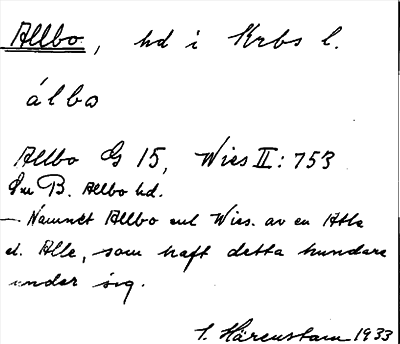 Allbo, hd i Krbs l.
álbo
Allbo G 15, Wies II: 753
Su B. Allbo hd.
— Namnet Allbo enl Wies. av en Atle
el. Alle, som haft detta hundare
under sig.
Härenstam 1933